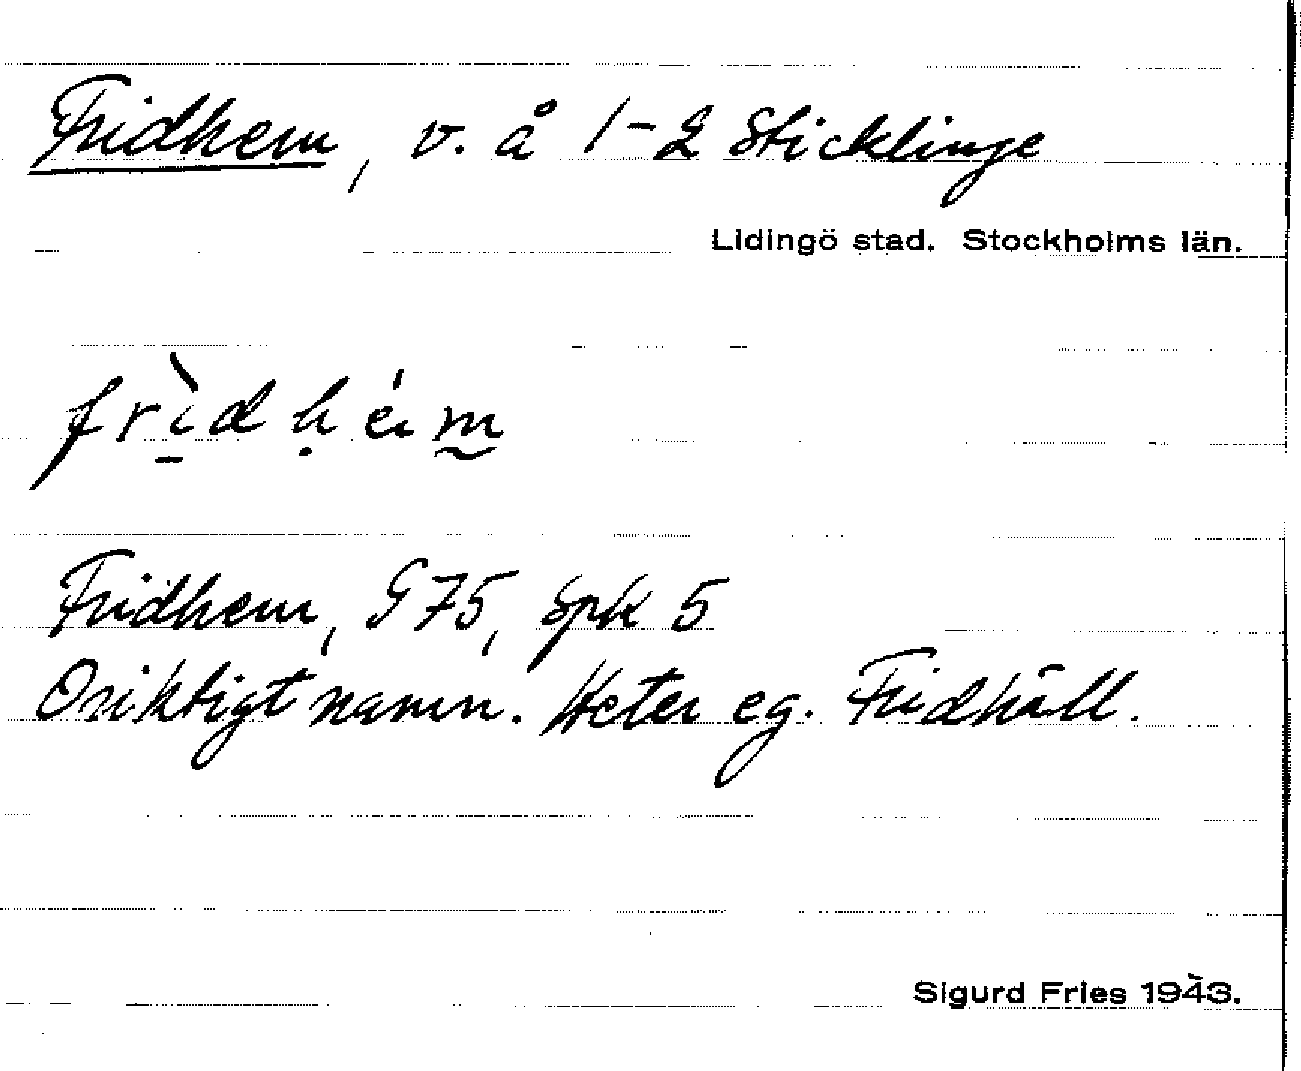 Fridhem, v. å 1-2 Sticklinge
Lidingö stad. Stockholms län.
frìdhéim
Fridhem, G 75, Spk 5
Oriktigt namn. Heter eg. Fridhäll.
Sigurd Fries 1943.